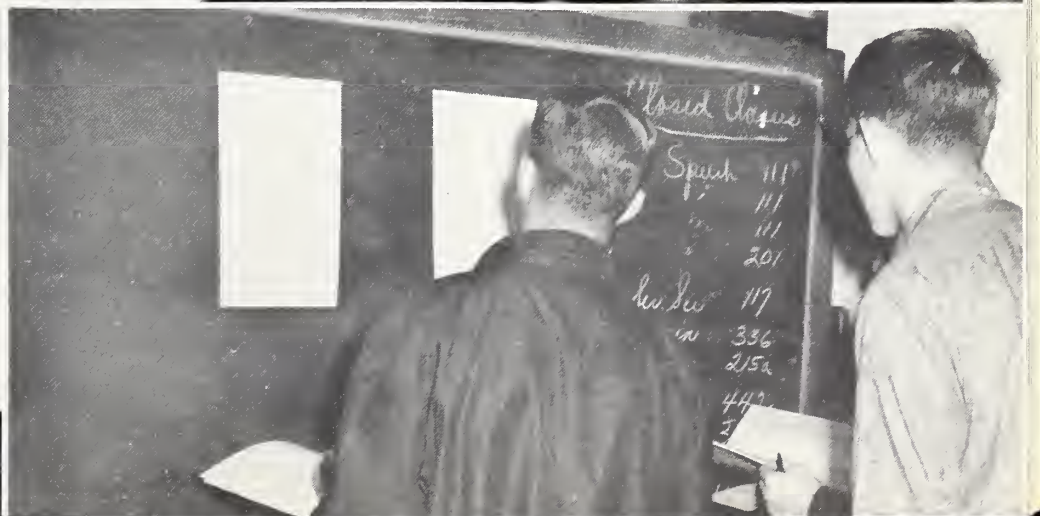 Closed Classes
Speech 111
" 111
" 111
" 201
117
336
215a
442